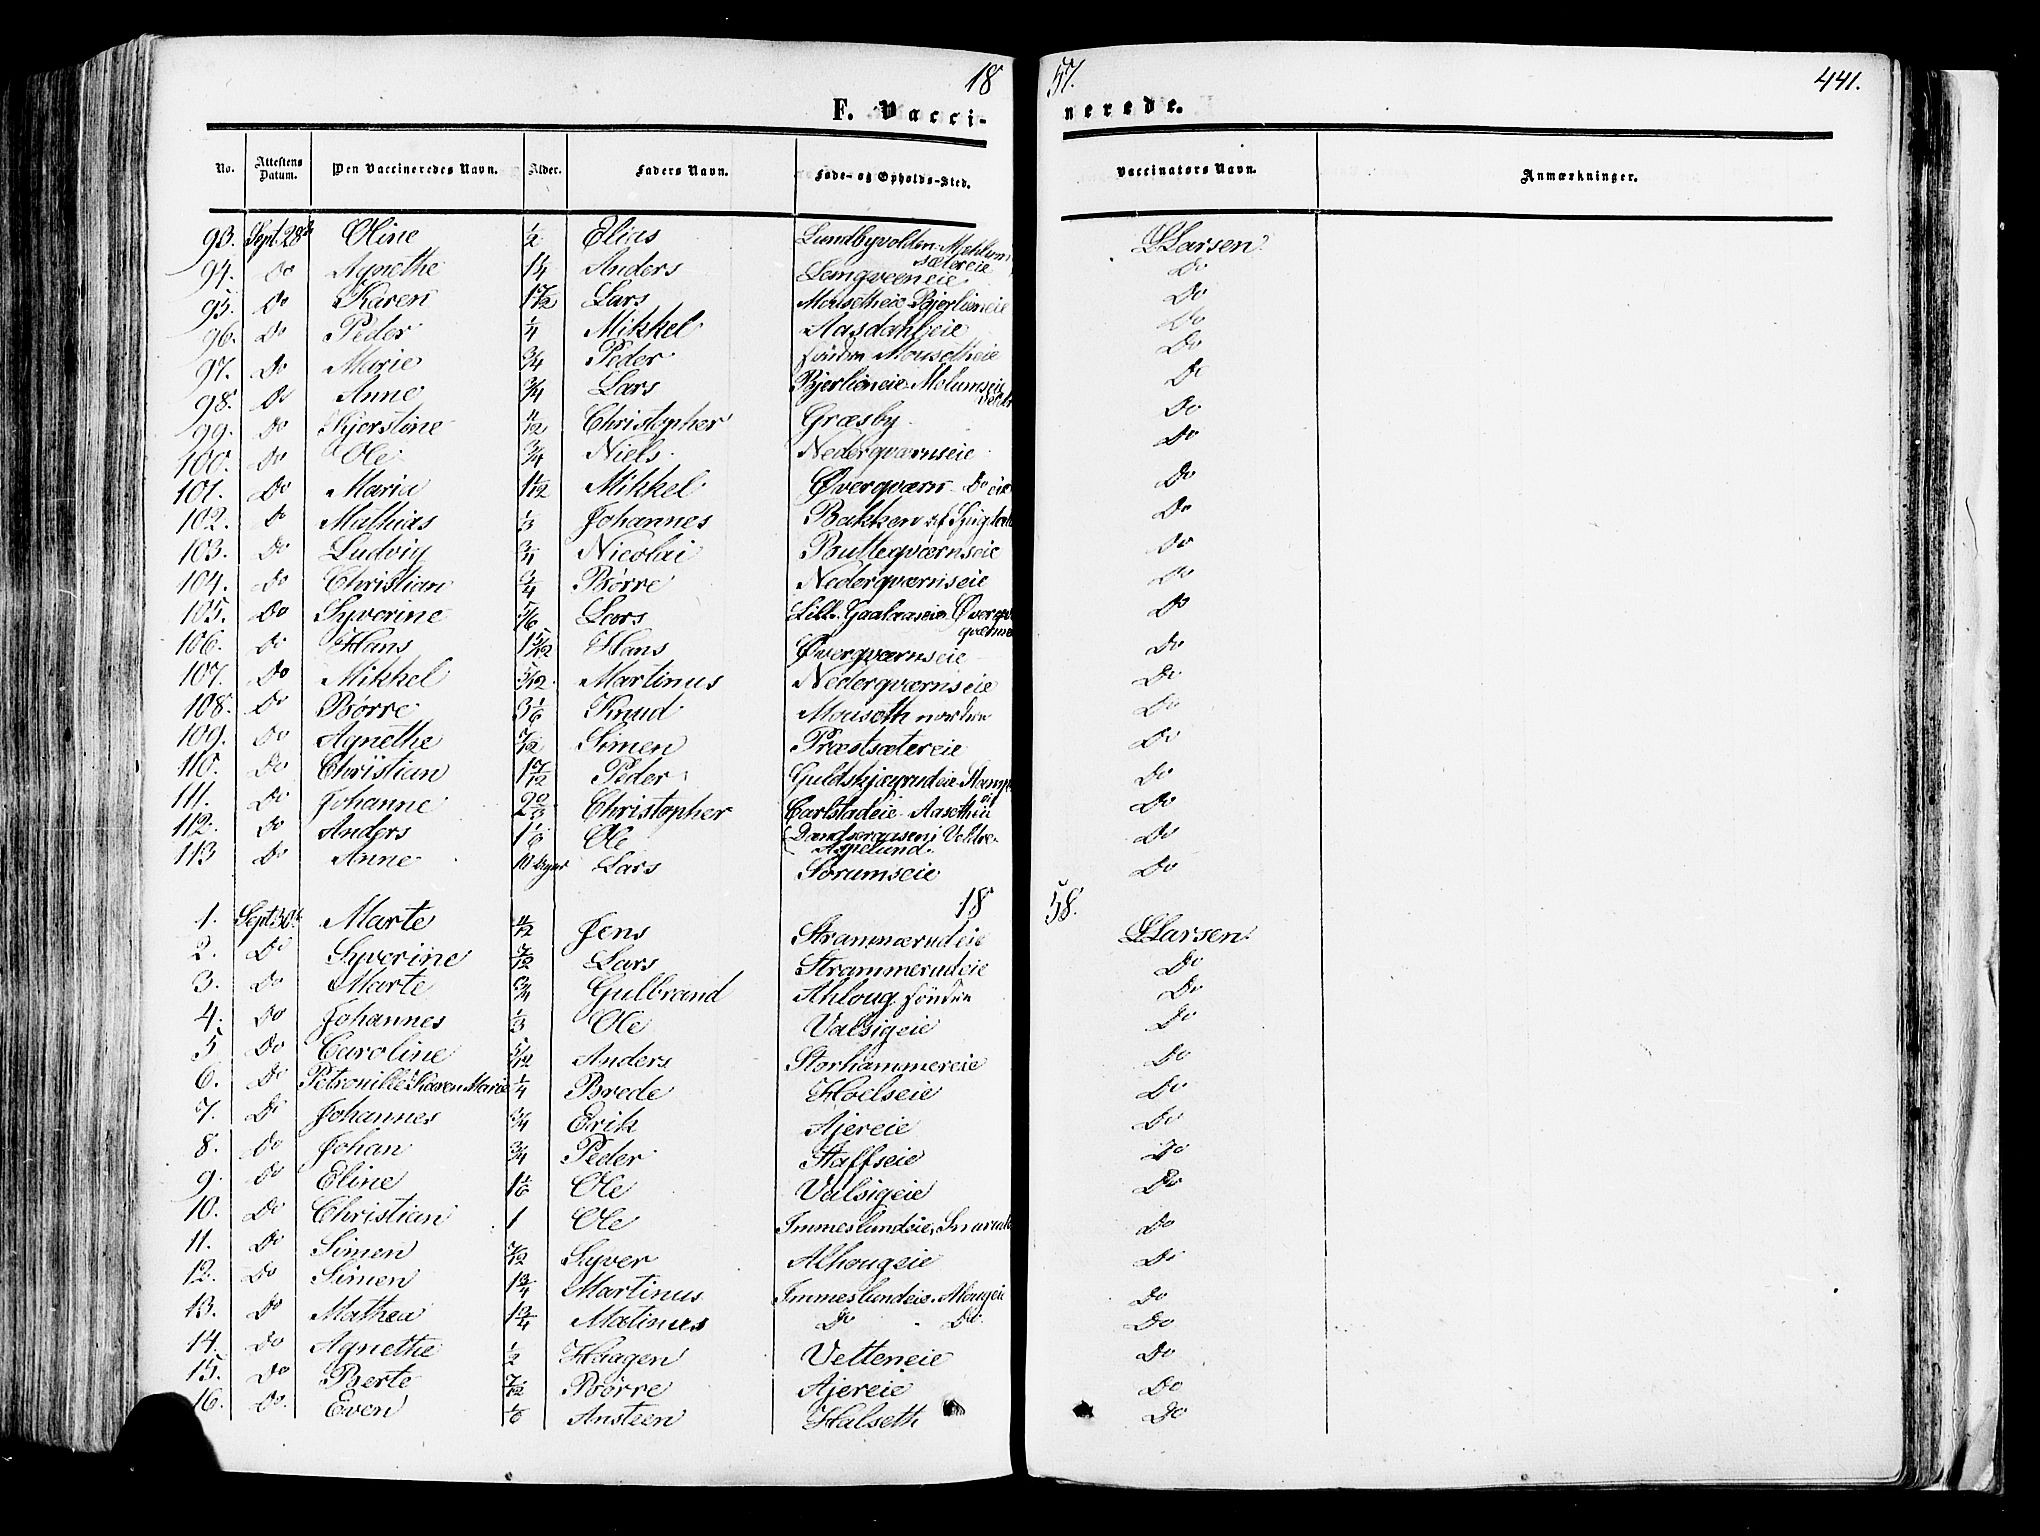 1857. 441.
F. Vaccinerede.
No. Attestens Datum. Den Vaccineredes Navn. Alder. Faders Navn. Føde- og Opholds-Sted. Vaccinators Navn. Anmærkninger.
93. Sept. 28de Oline 1/2 Elias Lundbyvolden Mæhlum sætereie LLarsen.
94. Do Agnethe 1 1/4 Anders Langveeneie Do
95. Do Karen 1 7/12 Lars Mousetheie Bjerlieneie Do
96. Do Peder 1/4 Mikkel Aasdahleie Do
97. Do Marie 3/4 Peder søndre Mousetheie Do
98. Do Anne 3/4 Lars Bjerlieneie Do
99. Do Kjerstine 11/12 Christopher Græsby Do
100. Do Ole 3/4 Niels Nederqværnseie Do
101. Do Maria 1 1/12 Mikkel Øverqværn Do eie Do
102. Do Mathias 1/3 Johannes Bakken Do
103. Do Ludvig 3/4 Nicolai Poulleqværnseie Do
104. Do Christian 3/4 Børre Nederqværnseie Do
105. Do Syverine 5/6 Lars Lille Gaalaaseie Do
106. Do Hans 1 5/12 Hans Øverqværnseie Do
107. Do Mikkel 5/12 Martinus Nederqværnseie Do
108. Do Børre 3 1/6 Knud Mouseth nordre Do
109. Do Agnethe 7/12 Simen Præstsætereie Do
110. Do Christian 1 7/12 Peder Guldskjærudeie Do
111. Do Johanne 2 2/3 Christopher Carlstadeie Aasetheie Do
112. Do Anders 1 1/6 Ole Veldre Aspelund Do
113 Do Anne 10 Uger Lars Sorumseie Do
1858.
1. Sept 30te Marte 11/12 Jens Strammerudeie LLarsen.
2. Do Syverine 7/12 Lars Strammerudeie Do
3. Do Marte 3/4 Gulbrand Ahloug søndre Do
4. Do Johannes 1/3 Ole Valsigeie Do
5 Do Caroline 5/12 Anders Storhammereie Do
6. Do Petronille Karen Marie 1/4 Brede Hoelseie Do
7. Do Johannes 3/4 Erik Ajereie Do
8. Do Johan 3/4 Peder Staffseie Do
9. Do Eline 1 1/6 Ole Valsigeie Do
10. Do Christian 1 Ole Immeslundeie Do
11. Do Simen 7/12 Syver Alhougeie Do
12. Do Simen 1 3/4 Martinus Immeslundeie Do
13. Do Mathea 1 3/4 Matinus Do Do Do
14. Do Agnethe 1/2 Haagen Vetteneie Do
15. Do Berte 7/12 Børre Ajereie Do
16. Do. Even 1/6 Ansteen Halseth Do